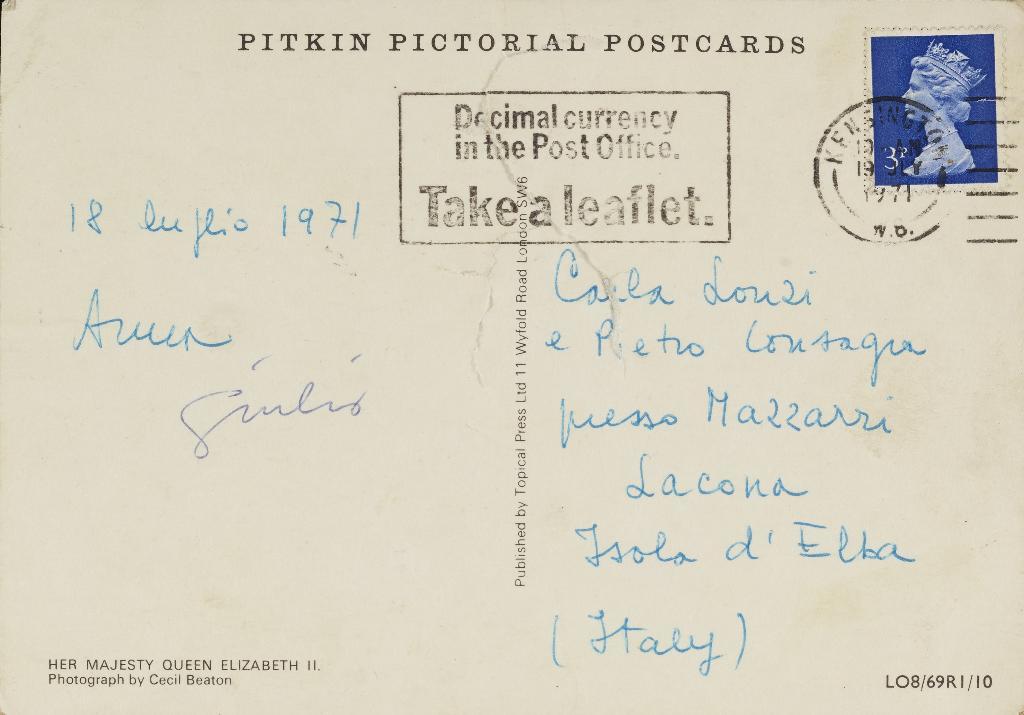 PITKIN PICTORIAL POSTCARDS
Decimal currency
in the Post Office.
Take a leaflet.
3P
KENSINGTON
10 AM
19 JLY
1971
W.8.
18 luglio 1971
Anna
Giulio
Published by Topical Press Ltd 11 Wyfold Road London SW6
Carla Lonzi
e Pietro Consagra
presso Mazzarri
Lacona
Isola d'Elba
(Italy)
HER MAJESTY QUEEN ELIZABETH II.
Photograph by Cecil Beaton
LO8/69R1/10